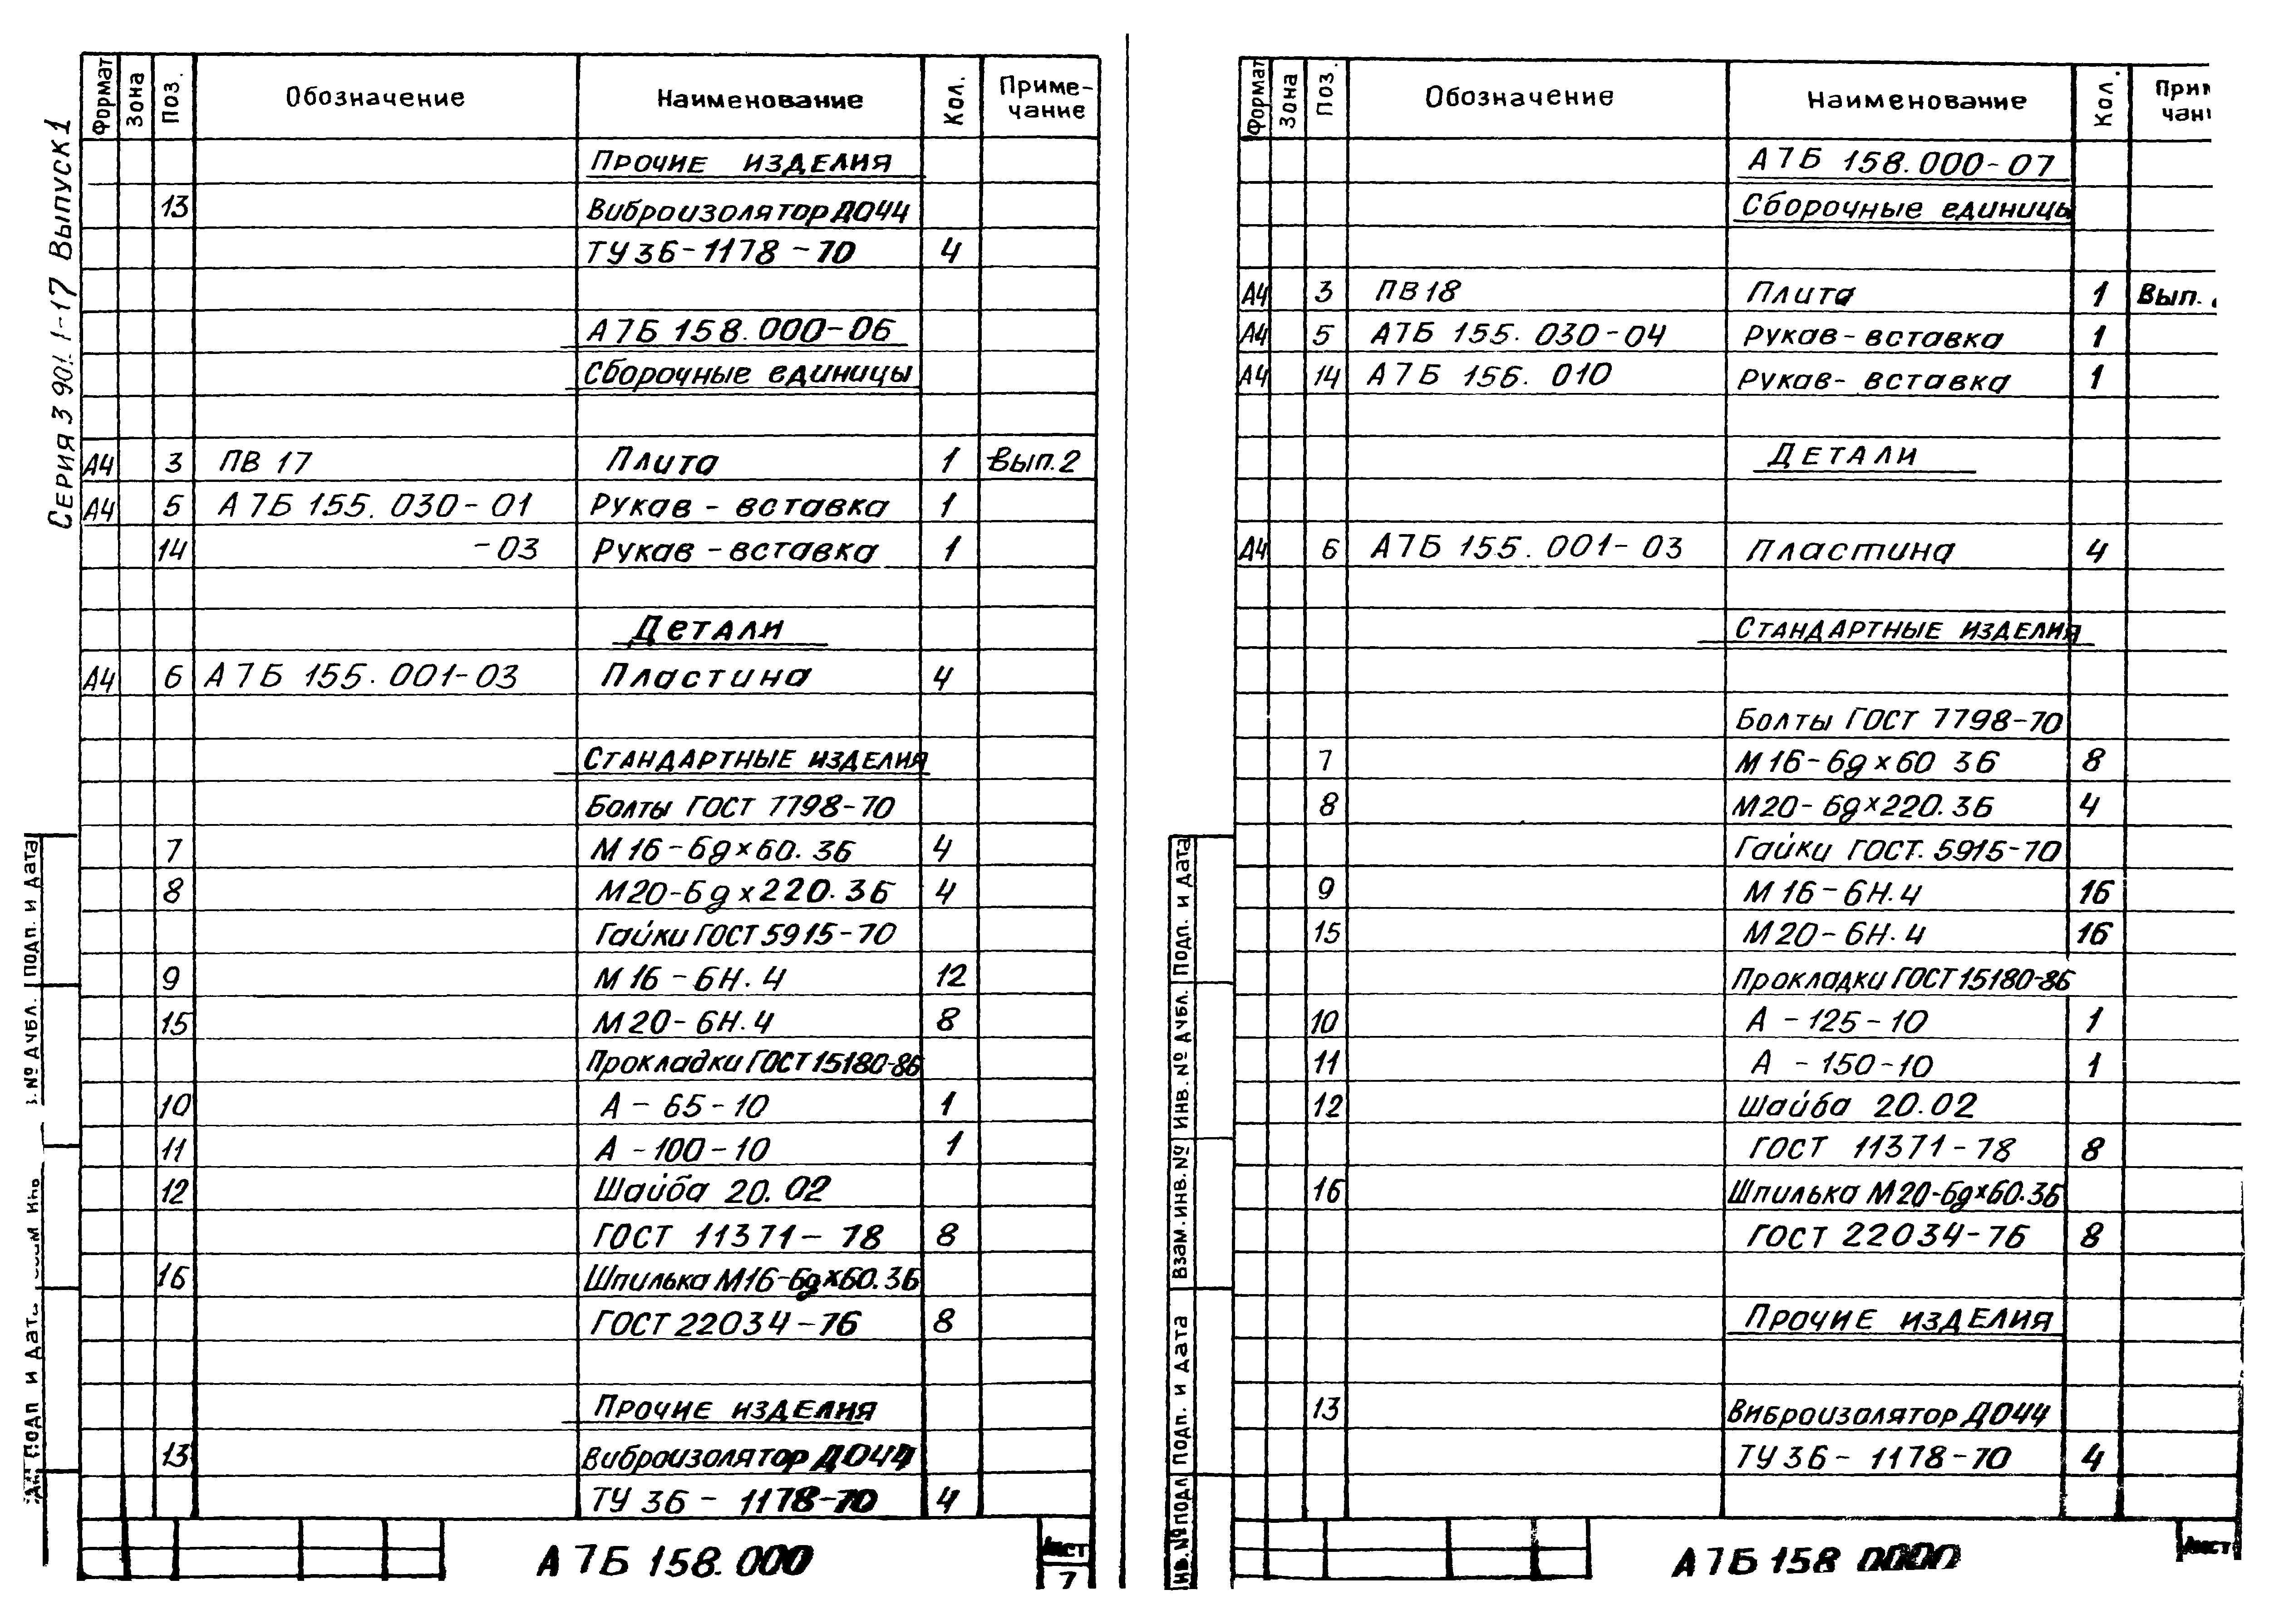 Серия 3 901.1-17 Выпуск 1
Формат Зона Поз. Обозначение Наименование Кол. Приме-
чание
Прочие изделия
13 Виброизолятор ДО44
ТУ 36-1178-70 4
А7Б 158.000-06
Сборочные единицы
А4 3 ПВ 17 Плита 1 Вып.2
А4 5 А7Б 155.030-01 Рукав-вставка 1
14 -03 Рукав-вставка 1
Детали
А4 6 А7Б 155.001-03 Пластина 4
Стандартные изделия
Болты ГОСТ 7798-70
7 М16-6g×60.36 4
8 М20-6g×220.36 4
Гайки ГОСТ 5915-70
9 М16-6Н.4 12
15 М20-6Н.4 8
Прокладки ГОСТ 15180-86
10 А-65-10 1
11 А-100-10 1
12 Шайба 20.02
ГОСТ 11371-78 8
16 Шпилька М16-6g×60.36
ГОСТ 22034-76 8
Прочие изделия
13 Виброизолятор ДО44
ТУ 36-1178-70 4
Подп. и дата
№ дубл.
Подп и дата
А7Б 158.000
Лист
7
Формат Зона Поз. Обозначение Наименование Кол.
А7Б 158.000-07
Сборочные единицы
А4 3 ПВ18 Плита 1 Вып.
А4 5 А7Б 155.030-04 Рукав-вставка 1
А4 14 А7Б 156.010 Рукав-вставка 1
Детали
А4 6 А7Б 155.001-03 Пластина 4
Стандартные изделия
Болты ГОСТ 7798-70
7 М16-6g×60 36 8
8 М20-6g×220.36 4
Гайки ГОСТ. 5915-70
9 М16-6Н.4 16
15 М20-6Н.4 16
Прокладки ГОСТ 15180-86
10 А-125-10 1
11 А-150-10 1
12 Шайба 20.02
ГОСТ 11371-78 8
16 Шпилька М20-6g×60.36
ГОСТ 22034-76 8
Прочие изделия
13 Виброизолятор ДО44
ТУ 36-1178-70 4
Подп. и дата
Инв.№ дубл.
Взам.инв.№
Подп. и дата
Инв.№ подл
А7Б 158 0000
Лист